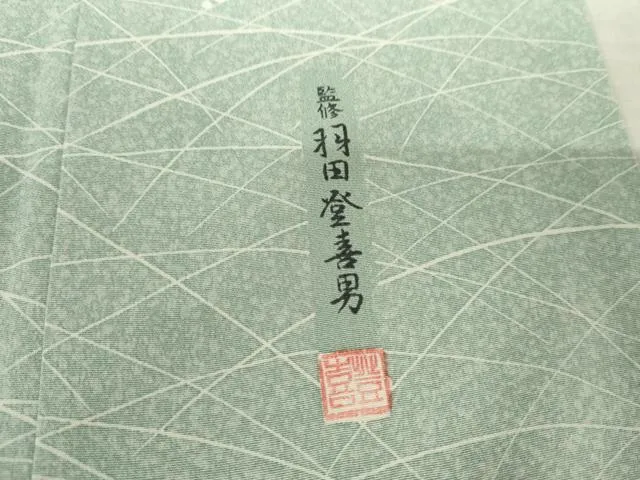 監修 羽田登喜男